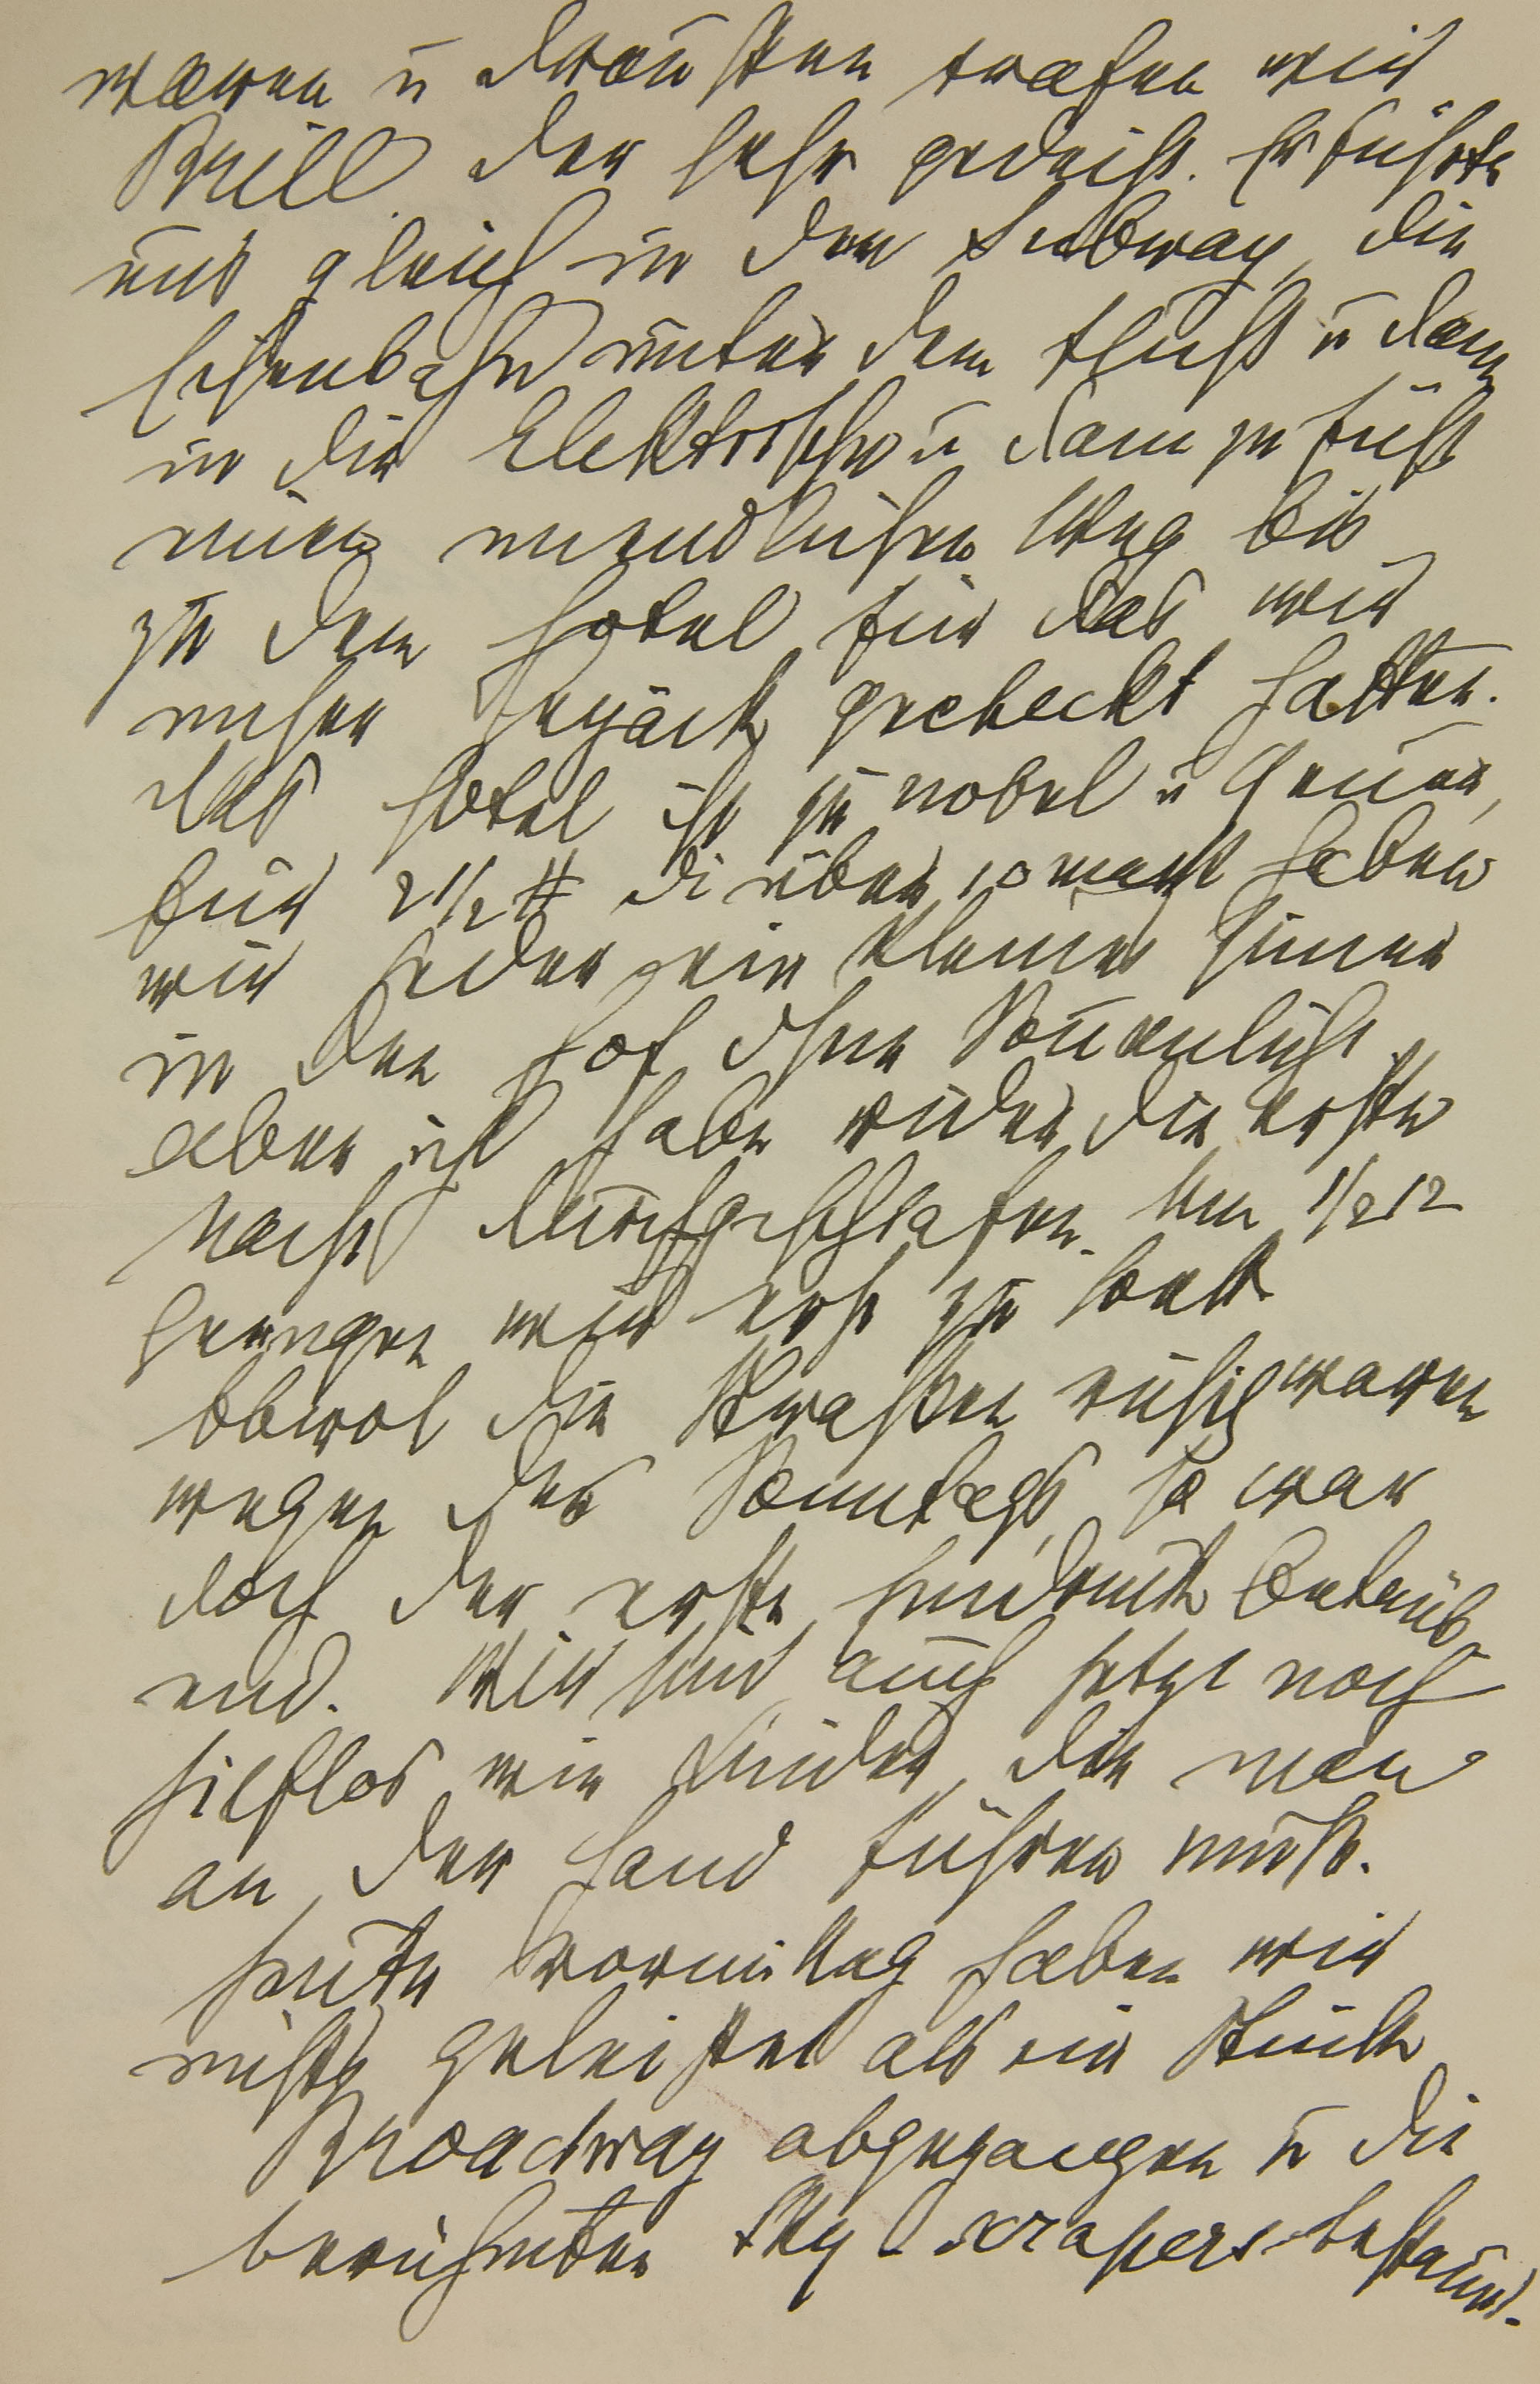 waren u draußen trafen wir
Brill der sehr gedeiht. Er führte
uns gleich in den Subway, die
Eisenbahn unter dem Fluß u dann
in die Elektrische u dann zu Fuß
einen unendlichen Weg bis
zu dem Hotel für das wir
unser Gepäck gecheckt hatten.
Das Hotel ist zu nobel u theuer,
für 2 1/2 $ di über 10 mark haben
wir jeder ein kleines Zimmer
in den Hof ohne Sonnenlicht
aber ich habe wieder die erste
Nacht durchgeschlafen. Um 1/2 12
giengen wir erst zu Bett.
Obwol die Straßen ruhig waren
wegen des Sonntags, so war
doch der erste Eindruck betäub-
end. Wir sind auch jetzt noch
hilflos wie Kinder, die man
an der Hand führen muß.
Heute Vormittag haben wir
nichts geleistet als ein Stück
Broadway abgegangen u die
berühmten Sky-scrapers bestaunt.